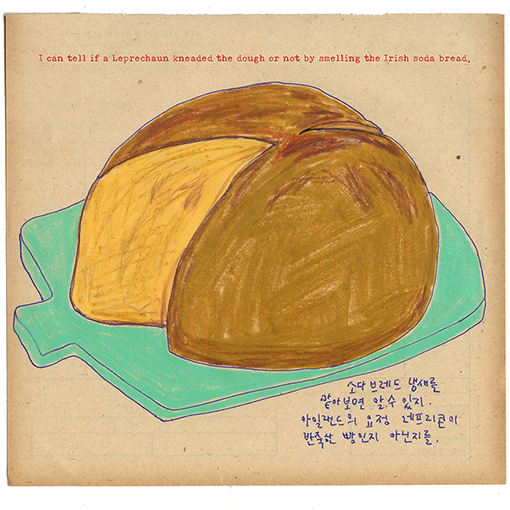 I can tell if a Leprechaun kneaded the dough or not by smelling the Irish soda bread.
소다 브레드 냄새를
맡아보면 알 수 있지.
아일랜드의 요정 레프리콘이
반죽한 빵인지 아닌지를.